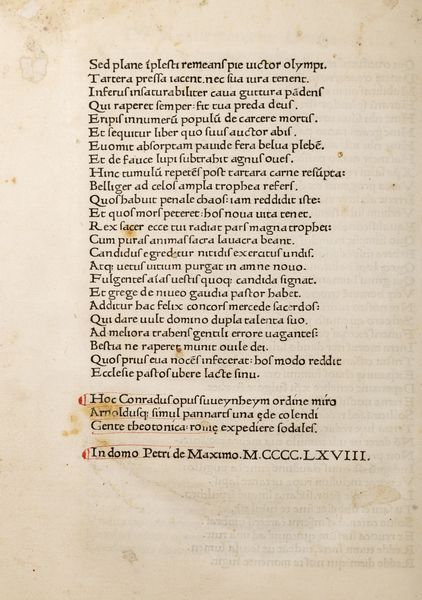 Sed plane īplesti remeans pie uictor olympi.
Tartera pressa iacent. nec sua iura tenent.
Inferus insaturabiliter caua guttura pādens
Qui raperet semper: fit tua preda deus.
Eripis innumerū populū de carcere mortis.
Et sequitur liber quo suus auctor abis.
Euomit absorptam pauide fera belua plebē.
Et de fauce lupi subtrahit agnus oues.
Hinc tumulū repetēs post tartara carne resūpta:
Belliger ad celos ampla trophea refers.
Quos habuit penale chaos: iam reddidit iste:
Et quos mors peteret: hos noua uita tenet.
Rex sacer ecce tui radiat pars magna trophei:
Cum puras animas sacra lauacra beant.
Candidus egredetur nitidis exercitus undis.
Atq; uetus uitium purgat in amne nouo.
Fulgentes aīas uestis quoq; candida signat.
Et grege de niueo gaudia pastor habet.
Additur hac felix concors mercede sacerdos:
Qui dare uult domino dupla talenta suo.
Ad meliora trahens gentili errore uagantes:
Bestia ne raperet munit ouile dei.
Quos prius eua nocēs infecerat: hos modo reddit
Ecclesie pastos ubere lacte sinu.
Hoc Conradus opus suueynheym ordine miro
Arnoldusq; simul pannarts una ęde colendi
Gente theotonica: romę expediere sodales.
In domo Petri de Maximo. M.CCCC.LXVIII.